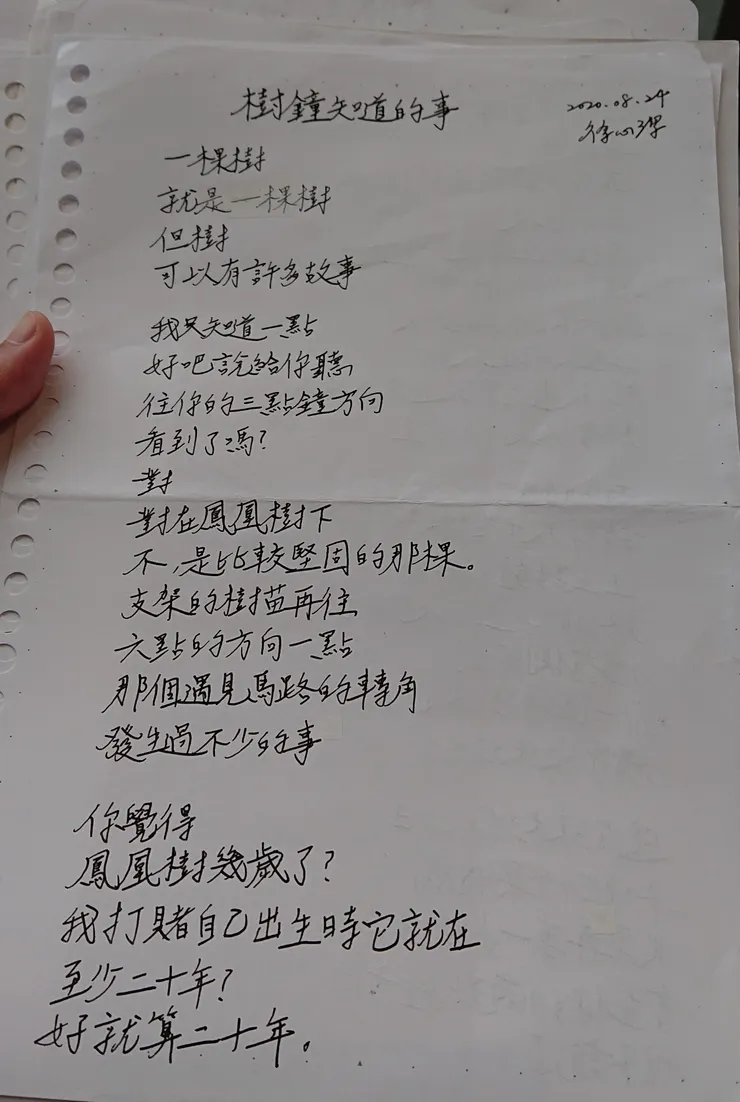 樹鐘知道的事
2020.08.24
徐心澤
一棵樹
就是一棵樹
但樹
可以有許多故事
我只知道一點
好吧說給你聽
往你的三點鐘方向
看到了嗎?
對
對在鳳凰樹下
不,是比較堅固的那棵。
支架的樹苗再往
六點的方向一點
那個遇見馬路的轉角
發生過不少的事
你覺得
鳳凰樹幾歲了?
我打賭自己出生時它就在
至少二十年?
好就算二十年。